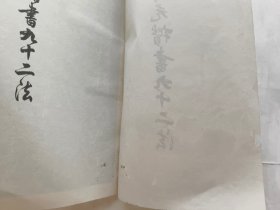 書九十二法
元楷書九十二法